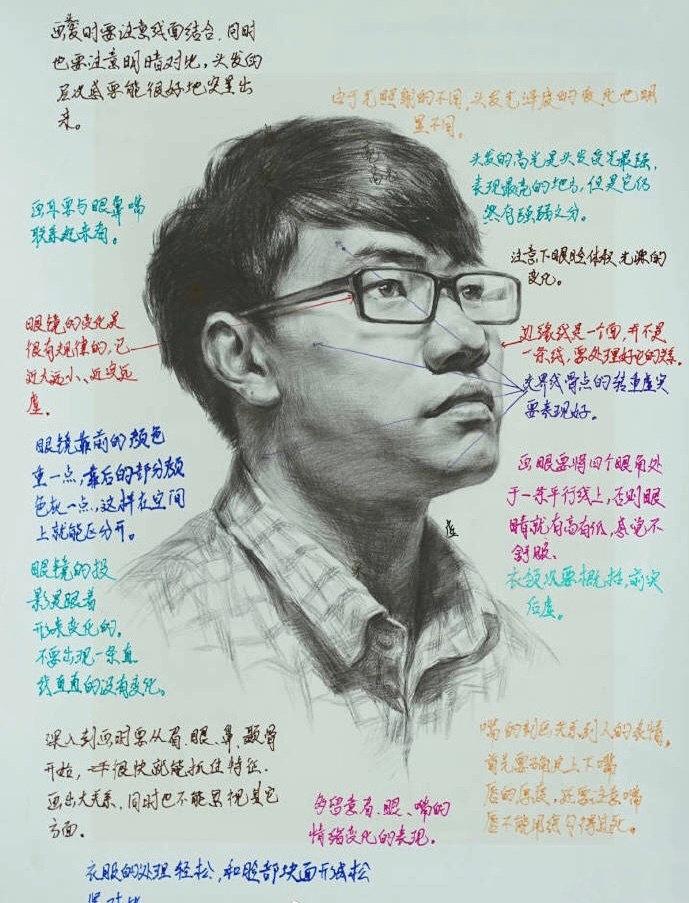 画发时要注意线面结合,同时
也要注意明暗对比,头发的
层次感要能很好地突显出
来。
由于光照射的不同,头发光泽度的变化也明
显不同。
头发的高光是头发反光最强,
表现最亮的地方,但是它仍
然有强弱之分。
画耳要与眼鼻嘴
联系起来看。
注意下眼睑体积光源的
变化。
眼镜的变化是
很有规律的,它
近大远小、近实远
虚。
边缘线是一个面,并不是
一条线,要处理好它的关系。
交界线骨点的转重虚实
要表现好。
眼镜靠前的颜色
重一点,靠后的部分颜
色灰一点,这样在空间
上就能区分开。
画眼要将四个眼角处
于一条平行线上,否则眼
睛就有高有低,感觉不
舒服。
虚
衣领处要概括,前实
后虚。
眼镜的投
影是跟着
形来变化的,
不要出现一条直
线直直的没有变化。
深入刻画时要从眉、眼、鼻、颧骨
开始,这样很快就能抓住特征。
画出大关系,同时也不能忽视其它
方面。
嘴的刻画关系到人的表情,
首先要确定上下嘴
唇的厚度,还要注意嘴
唇不能用线勾得太死。
多留意眉、眼、嘴的
情绪变化的表现。
衣服的处理轻松,和脸部块面形成松
紧对比